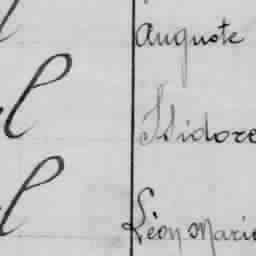 Auguste
l Isidore
l Léon Marie